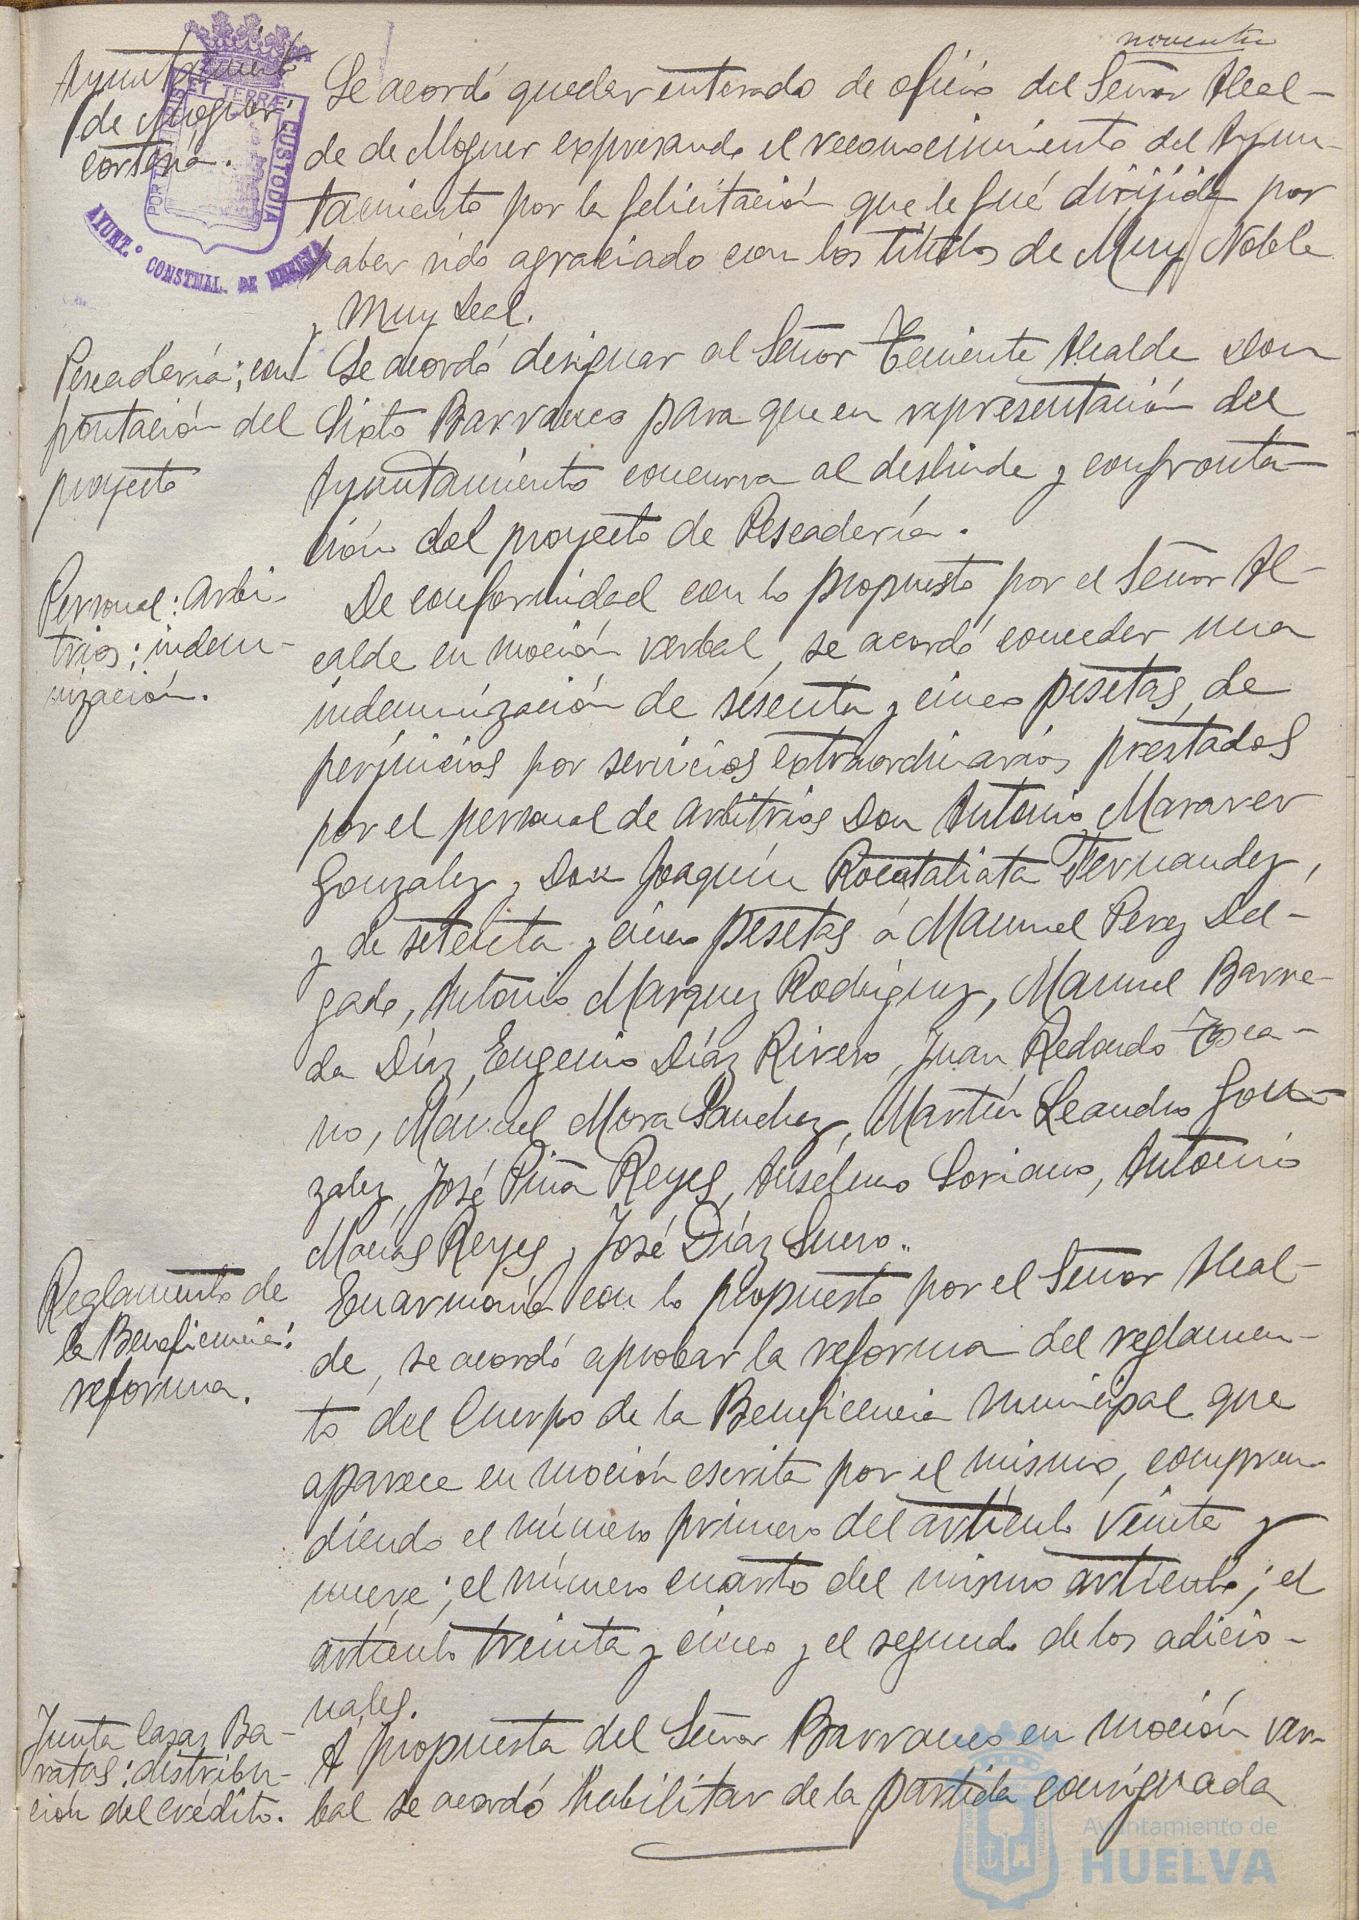 noventa
Ayuntamiento
de Moguer;
cortesía.
PORTUS MARIS ET TERRAE CUSTODIA
AYUNT.º CONSTNAL. DE HUELVA
Se acordó quedar enterado de oficio del Señor Alcal-
de de Moguer expresando el reconocimiento del Ayun-
tamiento por la felicitación que le fué dirijida por
haber sido agraciado con los titulos de Muy Noble
y Muy Leal.
Pescadería; con-
frontación del
proyecto
Se acordó designar al Señor Teniente Alcalde Don
Sixto Barranco para que en representación del
Ayuntamiento concurra al deslinde y confronta-
ción del proyecto de Pescadería.
Personal: Arbi-
trios; indem-
nización.
De conformidad con lo propuesto por el Señor Al-
calde en moción verbal, se acordó conceder una
indemnización de sesenta y cinco pesetas, de
perjuicios por servicios extraordinarios prestados
por el personal de arbitrios Don Antonio Maraver
Gonzalez y Don Joaquín Rocatallata Fernandez,
y de setenta y cinco pesetas á Manuel Perez Del-
gado, Antonio Marquez Rodriguez, Manuel Barre-
da Díaz, Eugenio Díaz Rivero, Juan Redondo Tosca-
no, Manuel Mora Sanchez, Martín Leandro Gon-
zalez, José Piña Reyes, Anselmo Soriano, Antonio
Macías Reyes y José Díaz Suero.
Reglamento de
la Beneficencia:
reforma.
En armonía con lo propuesto por el Señor Alcal-
de, se acordó aprobar la reforma del reglamen-
to del Cuerpo de la Beneficencia municipal que
aparece en moción escrita por el mismo, compren-
diendo el número primero del artículo veinte y
nueve; el número cuarto del mismo artículo; el
artículo treinta y cinco y el segundo de los adicio-
nales.
Junta Casas Ba-
ratas: distribu-
ción del crédito.
A propuesta del Señor Barranco en moción ver-
bal se acordó habilitar de la partida consignada
Ayuntamiento de
HUELVA